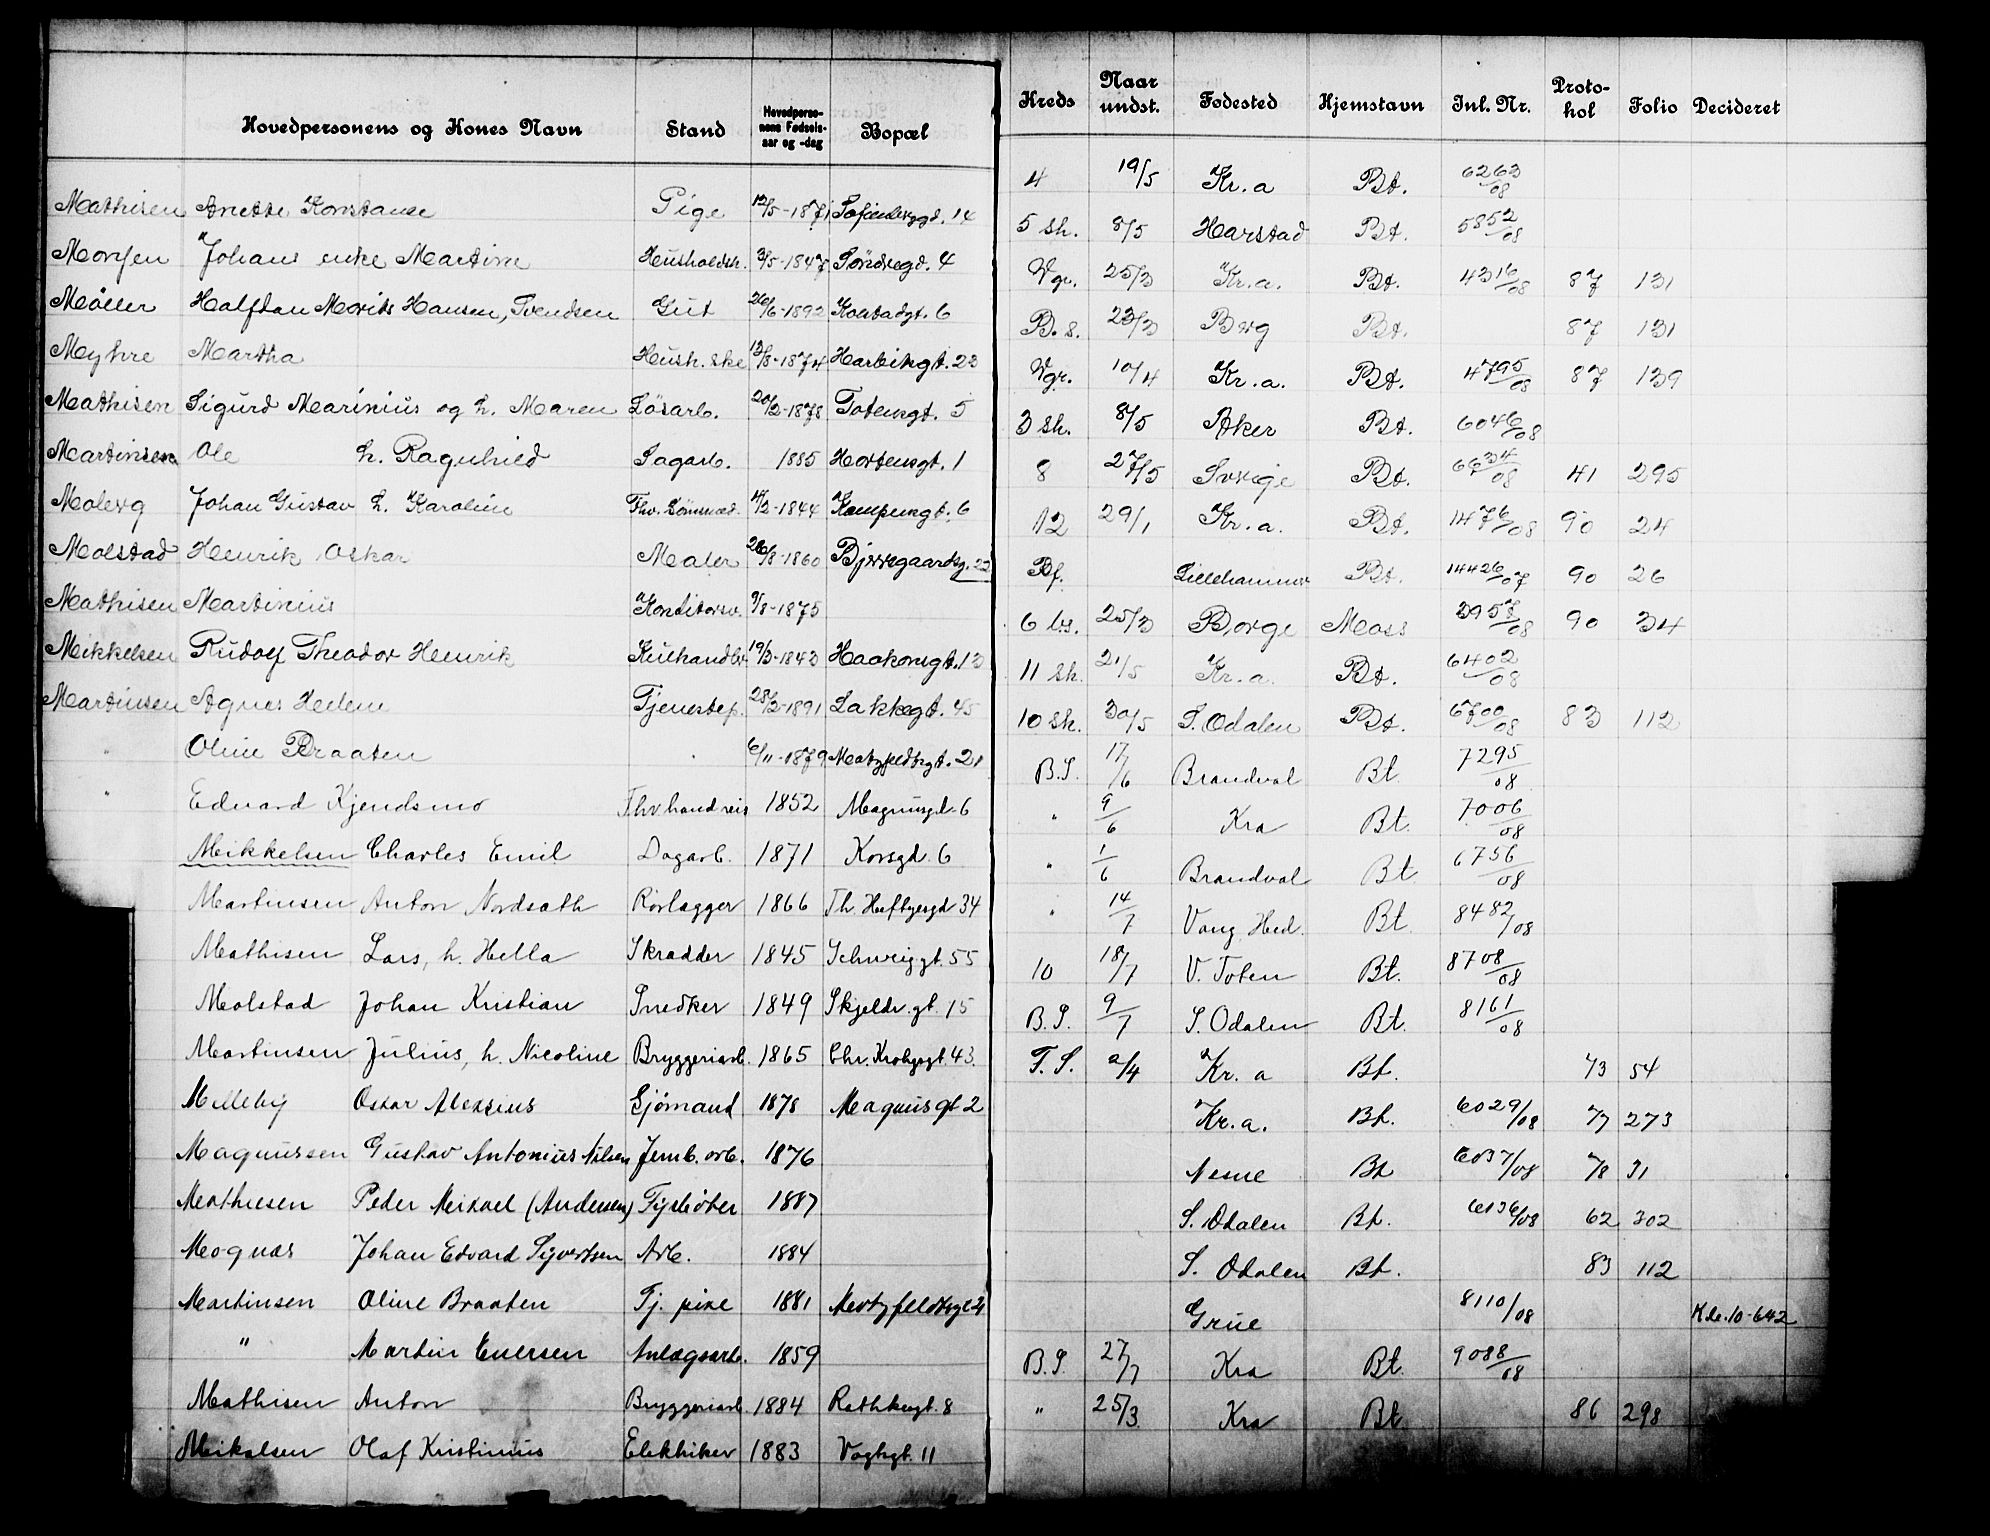 Hovedpersonens og Kones Navn Stand Hovedpersonens Fødselsaar og -dag Bopæl Kreds Naar undst. Fødested Hjemstavn Inl. Nr. Protokol Folio Decideret
Mathisen Anette Konstanse Pige 12/5-1871 Sofienbergd. 14 4 19/5 Kr.a Bt. 6263/08
Monsen Johans enke Martine Husholdsk. 3/5-1847 Søndregd. 4 5 sk. 8/5 Harstad Bt. 5852/08
Møller Halfdan Morits Hansen, Svendsen Gut 26/6-1892 Kolstadgt. 6 Vgr. 25/3 Kr.a. Bt. 4316/08 87 131
Myhre Martha Hush. ske 13/8-1874 Harbitzgt. 23 B.S. 23/3 Berg Bt. 87 131
Mathisen Sigurd Marinius og h. Maren Løsarb. 20/2-1878 Totengt. 5 Vgr. 10/4 Kr.a. Bt. 4795/08 87 139
Martinsen Ole h. Ragnhild Sagarb. 1885 Hortensgt. 1 3 sk. 8/5 Aker Bt. 6046/08
Moberg Johan Gustav h. Karoline Fhv. Lønnsøed. 4/2-1844 Kampengt. 6 8 27/5 Sverige Bt. 6634/08 41 295
Molstad Henrik Oskar Maler 26/8-1860 Bjerregaardsg. 22 12 29/1 Kr.a. Bt. 1476/08 90 24
Mathisen Martinius Konditorsv. 9/8-1875 Bf. Lillehammer Bt. 14426/07 90 26
Mikkelsen Rudolf Theodor Henrik Kulhandler 19/3-1843 Haakonsgt. 13 6 bs. 25/3 Borge Moss 3957/08 90 34
Martinsen Agnes Helene Tjenestep. 28/2-1891 Lakkegt. 45 11 sk. 21/5 Kr.a. Bt. 6402/08
" Oline Braaten " 6/11-1879 Motzfeldtsgt. 21 10 sk. 30/5 S. Odalen Bt. 6700/08 83 112
" Edvard Kjendsmo Fhv handreis 1852 Magnusgd. 6 B.S. 17/6 Brandval Bt. 7295/08
Mikkelsen Charles Emil Dagarb. 1871 Korsgd. 6 " 9/6 Kra Bt. 7006/08
Martinsen Anton Nordseth Rørlægger 1866 Th. Heftyesgd 34 " 1/6 Brandval Bt. 6756/08
Mathisen Lars, h. Hella Skrædder 1845 Schweiggt. 55 " 14/7 Vang Hed. Bt. 8482/08
Molstad Johan Kristian Snedker 1849 Skjeldr.gt. 15 10 18/7 V. Toten Bt. 8708/08
Martinsen Julius, h. Nicoline Bryggeriarb. 1865 Chr. Krohgsgt. 43. B.S. 9/7 S. Odalen Bt. 8161/08
Milleby Oskar Alexsius Sjømand 1878 Magnusgt 2 F.S. 2/4 Kr.a Bt. 73 54
Magnussen Gustav Antonius Nilsen Jernb. arb. 1876 Kr.a. Bt. 6029/08 77 273
Mathiesen Peder Mikael (Andersen) Fyrbøter 1887 Nesne Bt 6037/08 78 31
Mognæs Johan Edvard Syvertsen Arb. 1884 S. Odalen Bt. 6136/08 62 302
Martinsen Oline Braaten Tj. pike 1881 Motzfeldtsgt 21 S. Odalen Bt. 83 112
" Martin Eversen Anlægsarb. 1859 Grue 8110/08 Kde.10-642
Mathisen Anton Bryggeriarb. 1884 Rathkesgt. 8 B.S. 27/7 Kra Bt. 9088/08
Mikalsen Olaf Kristinius Elektriker 1883 Vogtsgt. 11 " 25/3 Kra Bt 86 298